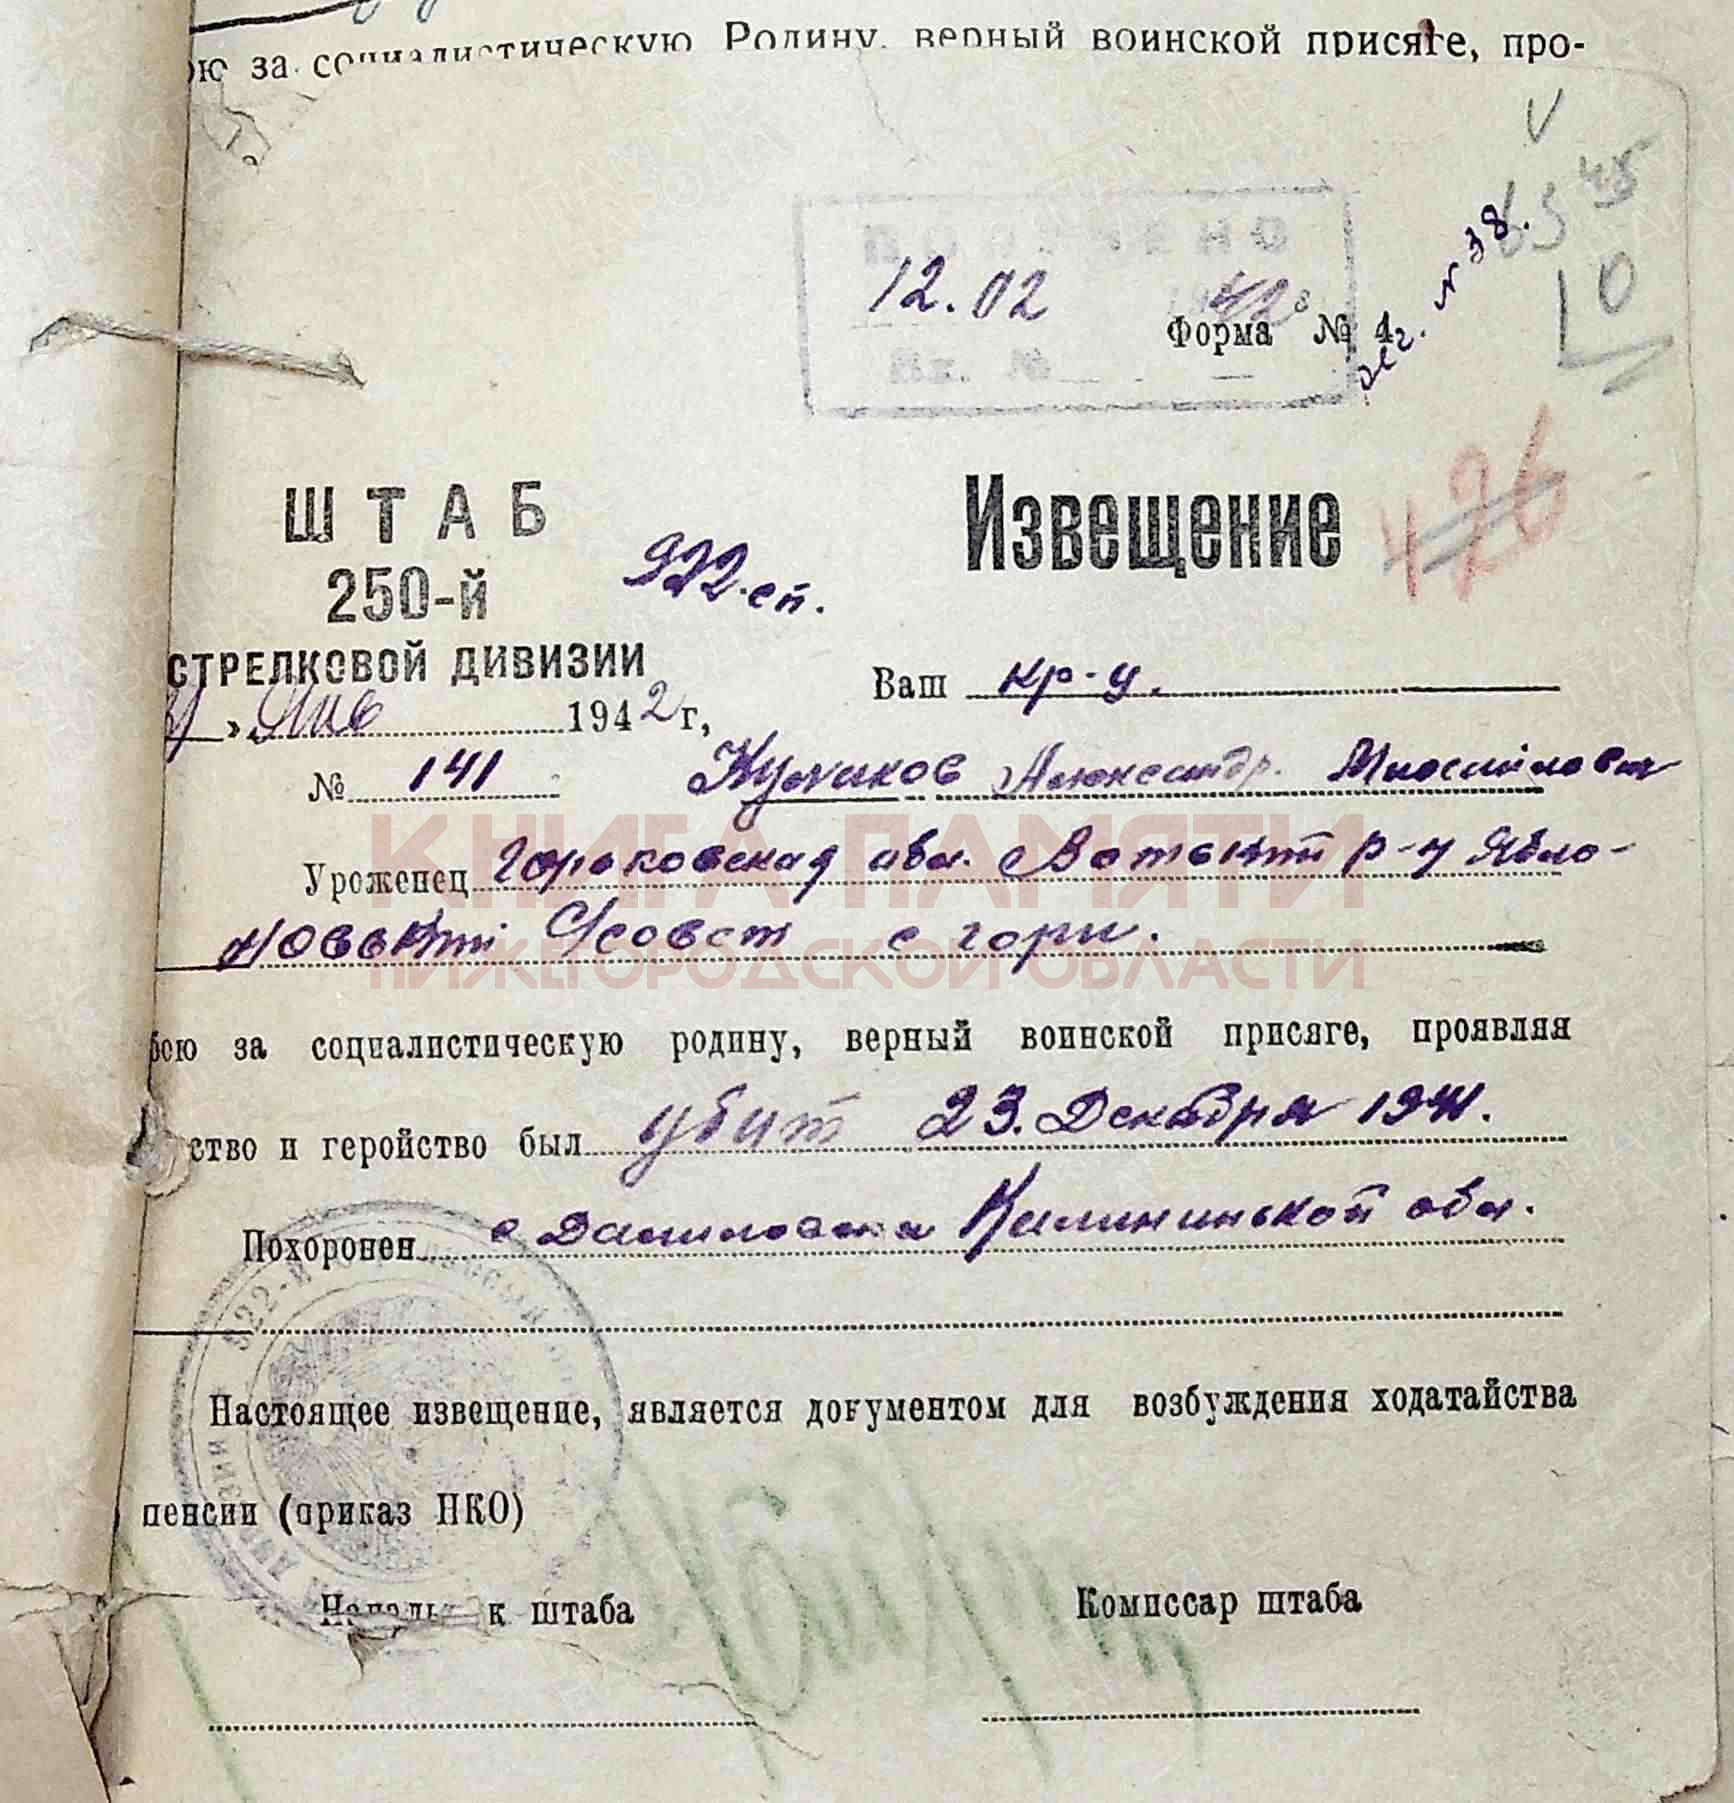 ою за социалистическую Родину, верный воинской присяге, про-
12.02 42
Форма № 4
Вх. №
№ 38.
45
426
ШТАБ
250-й
922 сп.
СТРЕЛКОВОЙ ДИВИЗИИ
Извещение
Ваш кр-ц.
» Янв 1942 г,
№ 141
Куликов Александр.
КНИГА ПАМЯТИ
НИЖЕГОРОДСКОЙ ОБЛАСТИ
Уроженец Горьковская обл. р-н Ябло-
новский С/совет с
бою за социалистическую родину, верный воинской присяге, проявляя
ство и геройство был убит 23. Декабря 1941.
Похоронен с Даниловска Калининской обл.
922-й
Настоящее извещение, является документом для возбуждения ходатайства
пенсии (приказ НКО)
Начальник штаба
Комиссар штаба